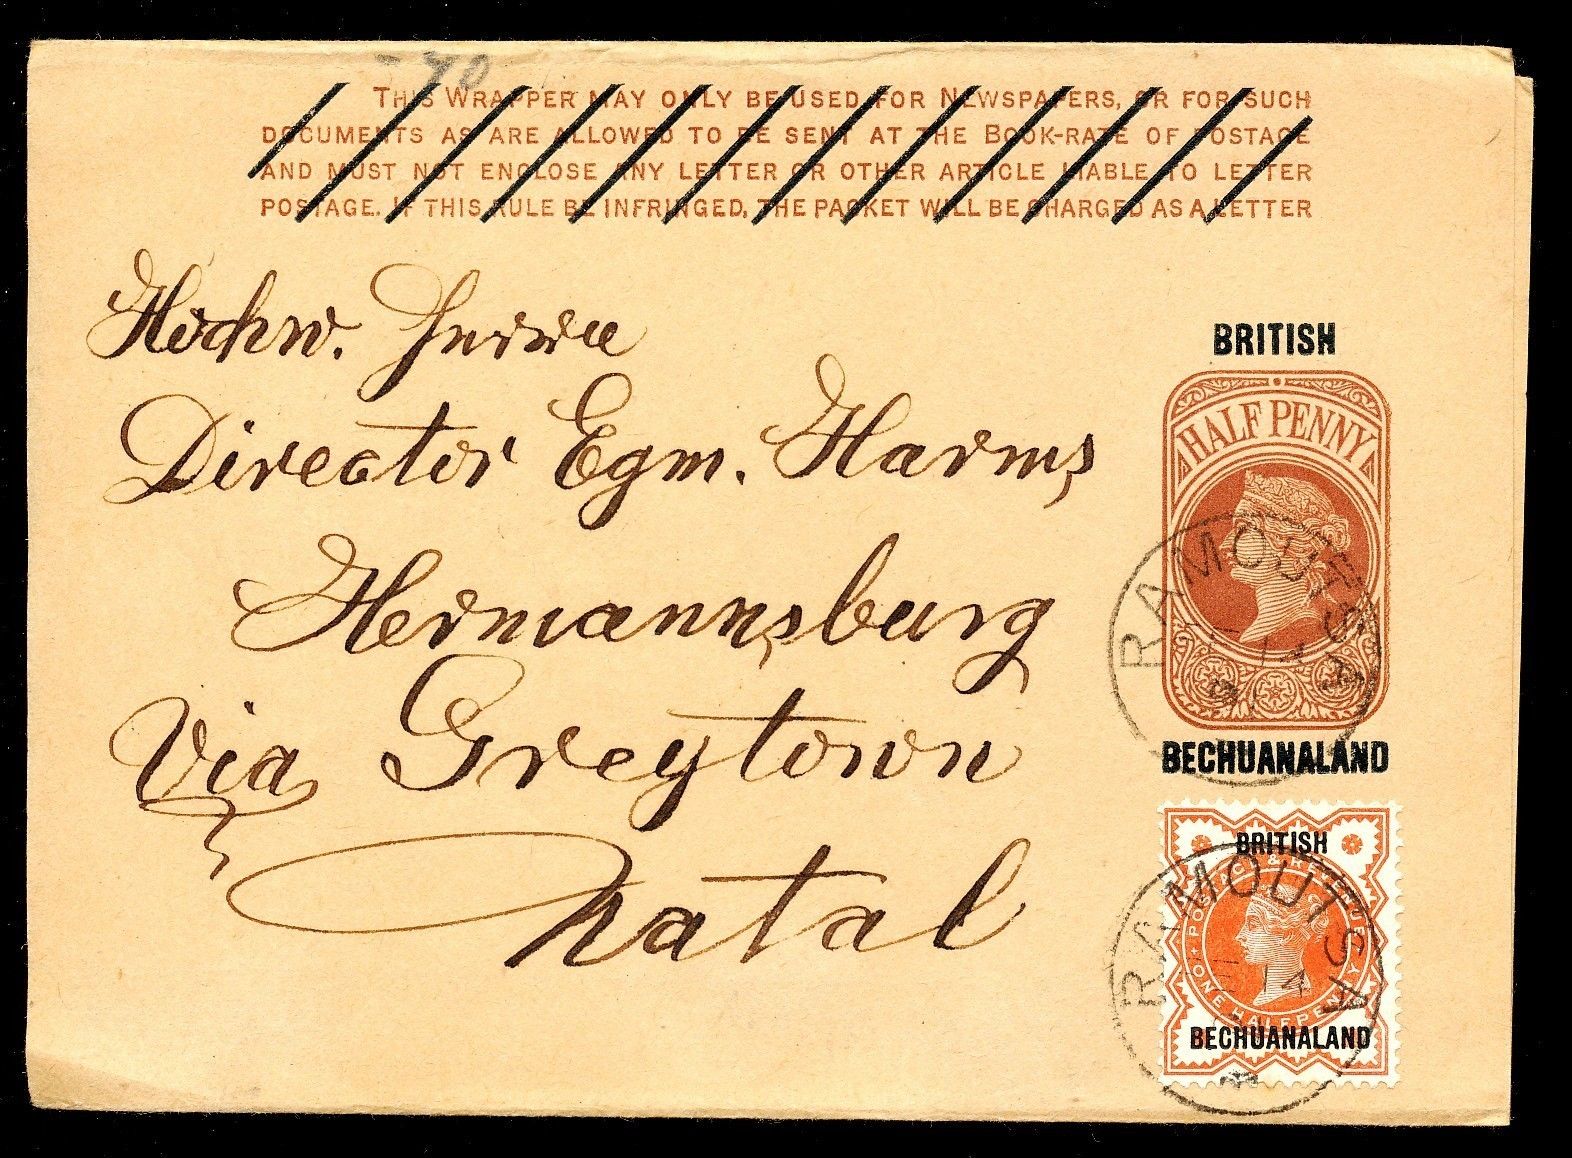 - 70
THIS WRAPPER MAY ONLY BE USED FOR NEWSPAPERS, OR FOR SUCH
DOCUMENTS AS ARE ALLOWED TO BE SENT AT THE BOOK-RATE OF POSTAGE
AND MUST NOT ENCLOSE ANY LETTER OR OTHER ARTICLE LIABLE TO LETTER
POSTAGE. IF THIS RULE BE INFRINGED, THE PACKET WILL BE CHARGED AS A LETTER
Hochw. Herrn
Director Egm. Harms
Hermannsburg
Via Greytown
Natal
BRITISH
HALF PENNY
RAMOUTSA
14
BECHUANALAND
BRITISH
POSTAGE & REVENUE
ONE HALFPENNY
RAMOUTSA
14
BECHUANALAND